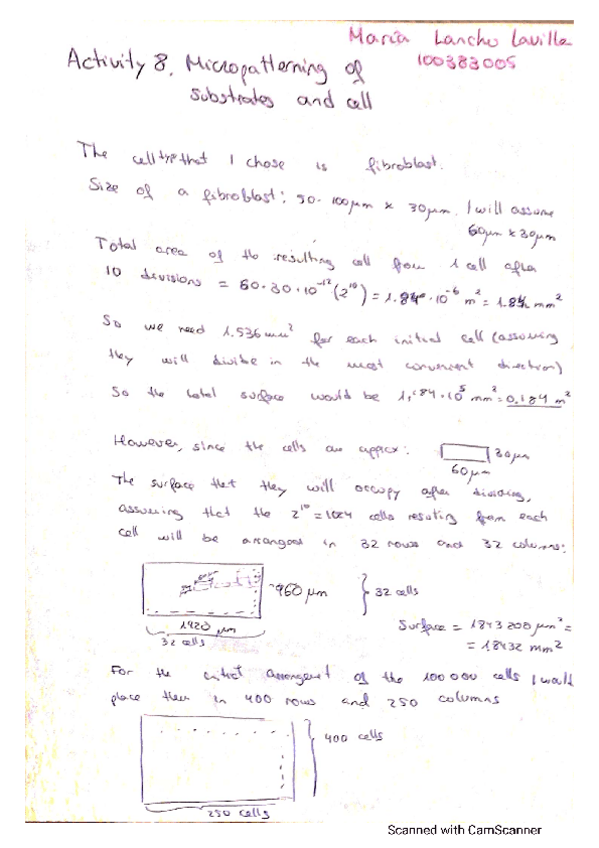 María Lancho Lavilla
100383005
Activity 8. Micropatterning of
substrates and cell
The cell type that I chose is fibroblast.
Size of a fibroblast: 50-100μm x 30μm. I will assume
60μm x 30μm
Total area of the resulting cell from 1 cell after
10 divisions = 60·30·10⁻¹²(2¹⁰) = 1.84·10⁻⁶ m² = 1.84 mm²
So we need 1.536 mm² for each initial cell (assuming
they will divide in the most convenient direction)
So the total surface would be 1,84·10⁵ mm² = 0.184 m²
However, since the cells are approx: 30μm
60μm
The surface that they will occupy after dividing,
assuming that the 2¹⁰ = 1024 cells resulting from each
cell will be arranged in 32 rows and 32 columns:
960 μm } 32 cells
1920 μm
32 cells
Surface = 1843200 μm² =
= 18432 mm²
For the initial arrangement of the 100 000 cells I would
place them in 400 rows and 250 columns
400 cells
250 cells
Scanned with CamScanner